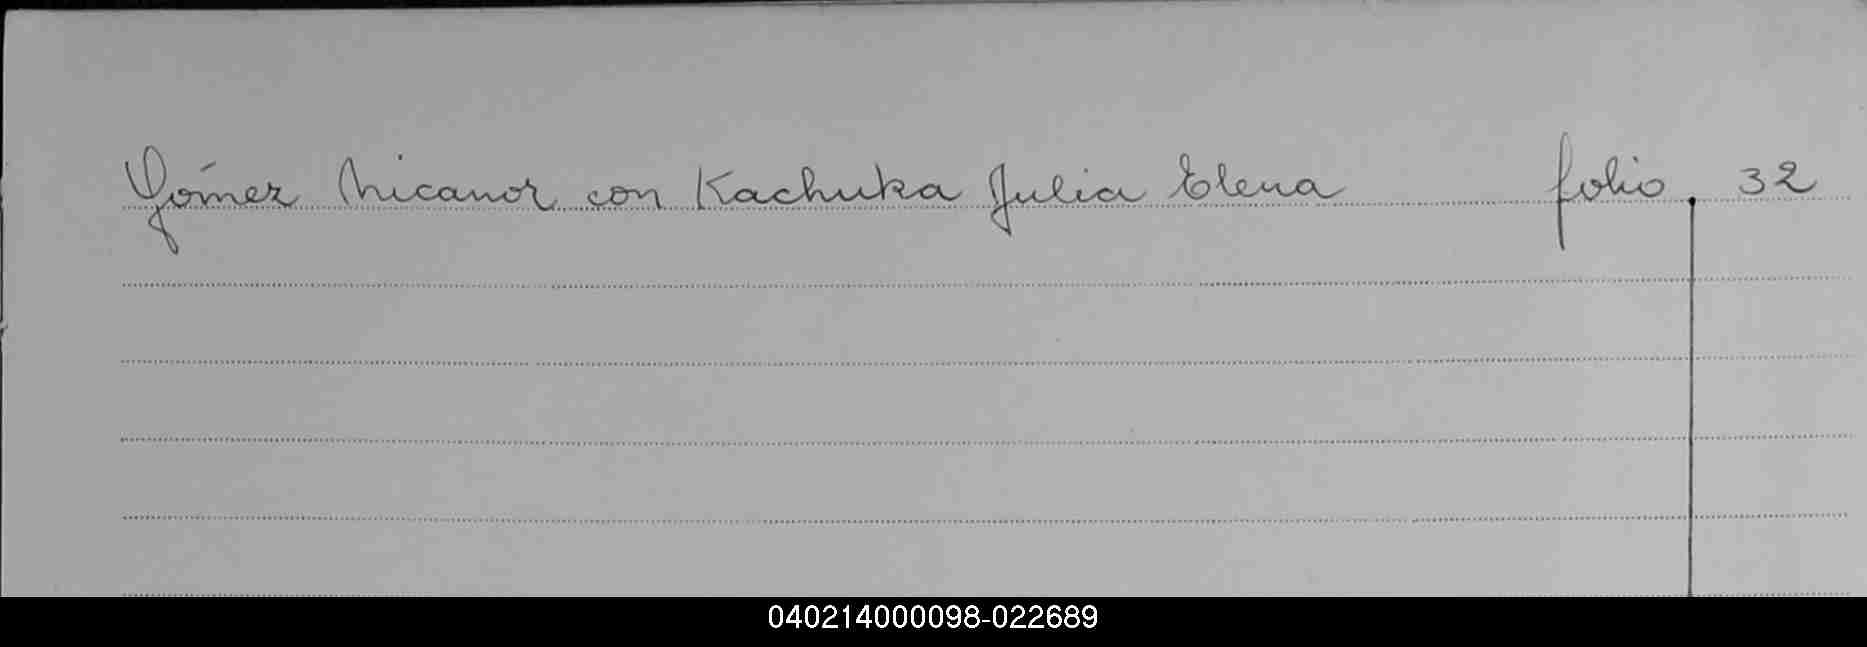 Gómez Nicanor con Kachuka Julia Elena folio 32
040214000098-022689